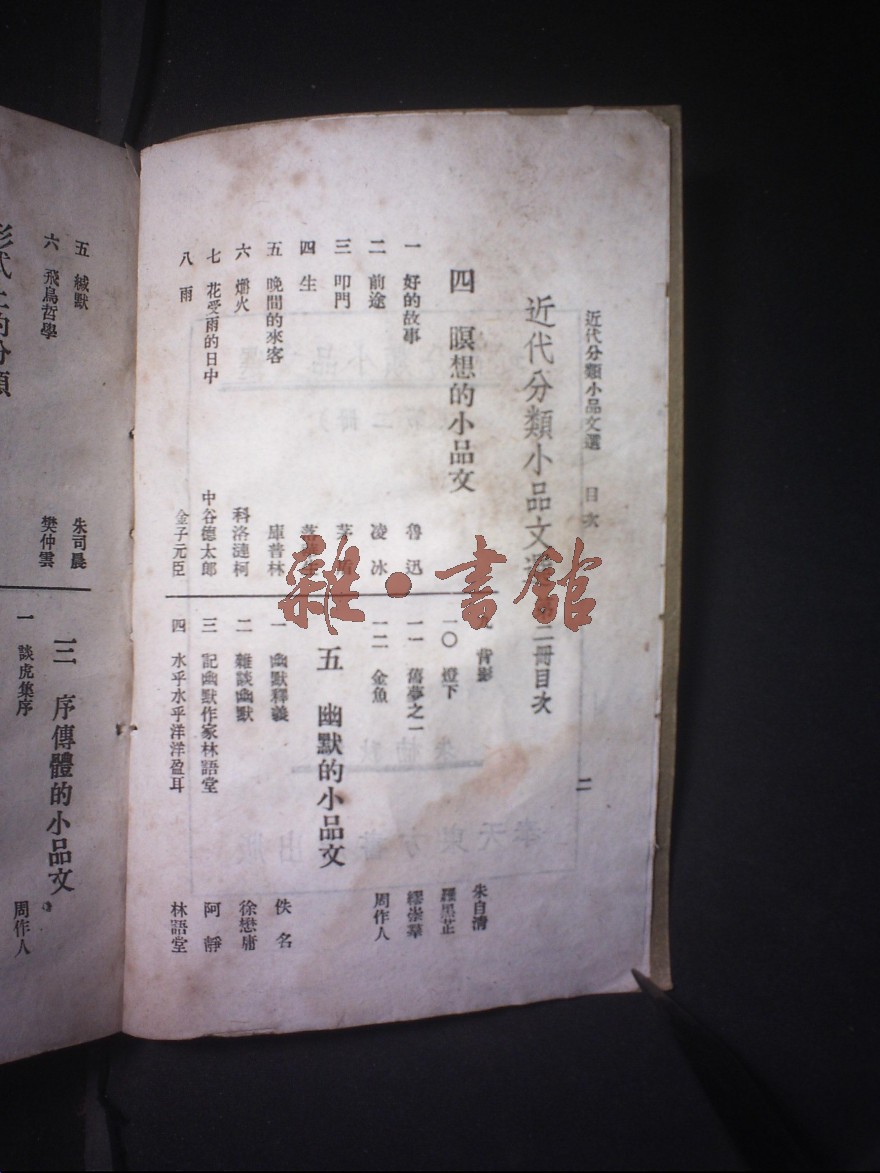 近代分類小品文選 目次 二
近代分類小品文選 二冊目次
四 瞑想的小品文
一 好的故事 魯迅
二 前途 凌冰
三 叩門
四 生
五 晚間的來客 庫普林
六 爝火 科洛漣柯
七 花受雨的日中 中谷德太郎
八 雨 金子元臣
背影 朱自清
一〇 燈下 羅黑芷
一一 舊夢之一 繆崇羣
一二 金魚 周作人
五 幽默的小品文
一 幽默釋義 佚名
二 雜談幽默 徐懋庸
三 記幽默作家林語堂 阿靜
四 水乎水乎洋洋盈耳 林語堂
雜·書館
五 緘默 朱司晨
六 飛鳥哲學 樊仲雲
形式上的分類
三 序傳體的小品文
一 談虎集序 周作人